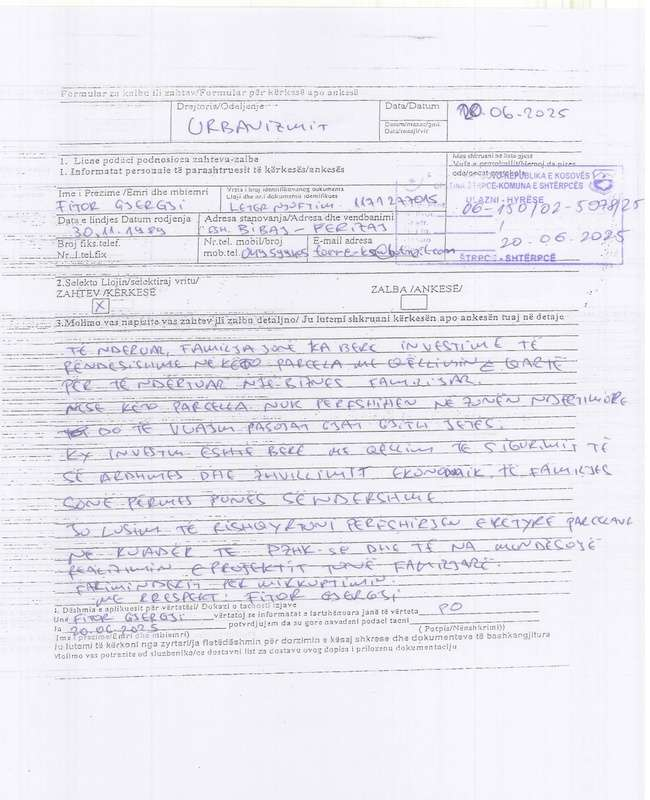 Formular za žalbu ili zahtev/Formular për kërkesë apo ankesë
Drejtoria/Odaljenje
URBANIZMIT
Data/Datum
20.06.2025
Datum/mesac/god.
Data/muaji/vit
1. Liçne podaci podnosioca zahteva-zalba
1. Informatat personale të parashtruesit të kërkesës/ankesës
REPUBLIKA E KOSOVËS
ŠTRPCE-KOMUNA E SHTËRPCËS
ULAZNI - HYRËSE
06-150/02-5078/25
20.06.2025
ŠTRPCE - SHTËRPCË
Ime i Prezime /Emri dhe mbiemri
FITOR GJERGJI
Vrsta i broj identifikacionog dokumenta
Lloji dhe nr.i dokumentit identifikues
LETERNJOFTIM
1171277015
Data e lindjes Datum rodjenja
30.11.1989
Adresa stanovanja/Adresa dhe vendbanimi
BH. BIBAJ - FERIZAJ
Broj fiks.telef.
Nr. I.tel.fix
Nr.tel. mobil/broj
mob.tel
E-mail adresa
2.Selekto Llojin/selektiraj vrstu/
ZAHTEV /KËRKESË
X
ZALBA /ANKESË/
3.Molimo vas napisite vas zahtev ili zalbu detaljno/ Ju lutemi shkruani kërkesën apo ankesën tuaj në detaje
TË NDERUAR, FAMILJA JONË KA BERE INVESTIME TË
RENDESISHME NE KETO PARCELA ME QËLLIMIN E QARTË
PËR TË NDERTUAR NJE BIZNES FAMILJAR.
NESE KETO PARCELA NUK PERFSHIHEN NË ZONËN NDERTIMORE
DO TË VUAJM PASOJAT GJAT GJITH JETËS.
KY INVESTIM ESHTE BERË ME QELLIM TE SIGURIMIT TË
SË ARDHMES DHE ZHVILLIMIT EKONOMIK TË FAMILJES
SONË PËRMES PUNËS SË NDERSHME
JU LUSIM TË RISHQYRTONI PERFSHIRJEN E KETYRE PARCELAVE
NË KUADËR TË PZHK-SE DHE TË NA MUNDËSOJË
REALIZIMIN E PROJEKTIT TONË FAMILJARË.
FALIMINDERIT PER MIRKUPTIMIN.
ME RRESPEKT: FITOR GJERGJI
i. Dëshmia e aplikuesit për vërtetësi/ Dokazi o tacnosti izjave
Unë FITOR GJERGJI vërtetoj se informatat e lartshënuara janë të vërteta PO
Ja 20.06.2025 potvrdjujem da su gore navadani podaci tacni
(Ime i prezime/Emri dhe mbiemri) ( Potpis/Nënshkrimi)
Ju lutemi të kërkoni nga zyrtari/ja fletëdëshmin për dorzimin e kësaj shkrese dhe dokumenteve të bashkangjitura
Molimo vas potrazite od sluzbenika/ce dostavni list za dostavu ovog dopisa i prilozenu dokumentaciju